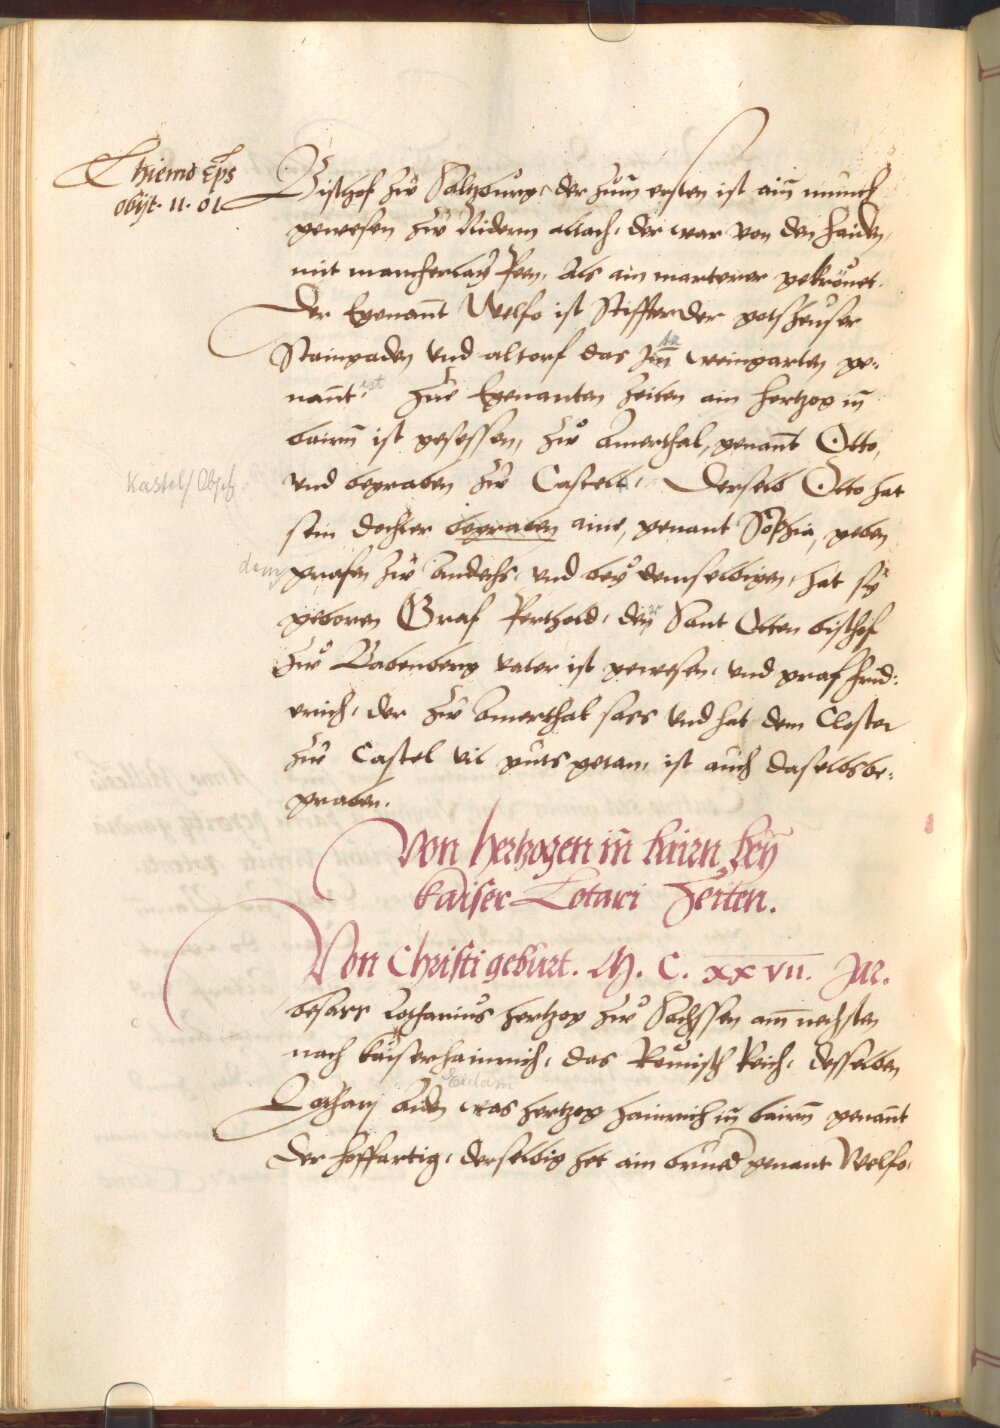 Thiemo Eps
obijt · 11 · 01
Bischof zu Saltzburg, der zum ersten ist ain munch
gewesen zu Nidern altach, der war von den haiden,
mit mancherlay Peen, Als ain marterer gekrönet.
Der Egenant Welfo ist Stiffter der gotsheuser
Staingaden vnd altorf das Im weingarten ge-
nant, Zu Egenanten zeiten ain hertzog in
bairn ist gesessen, zu Amerthal, genant Otto,
Kastel/Obpf.
vnd begraben zu Castell, Derselb Otto hat
sein dochter begraben aine, genant Sophia, geben
dem
grafen zu Andechs, vnd bey demselbigen, hat sy
geboren Graf Perthold, den Sant Otten bischof
zu Babenberg vater ist gewesen, vnd graf frid-
erich, der zu Amerthal sass vnd hat dem Closter
zu Castel vil guts getan, ist auch daselbs be-
graben.
Von hertzogen in bairn bey
kaiser Lotari Zeiten.
Von Christi geburt. M. C. xxvii. Jar.
besass Lotharius hertzog zu Sachssen am nechsten
nach kaiser hainrich, das Römisch Reich, desselben
Eidam
Lotharj Aiden was hertzog hainrich in bairn genant
der hoffartig, derselbig het ain bruder genant Welfo,